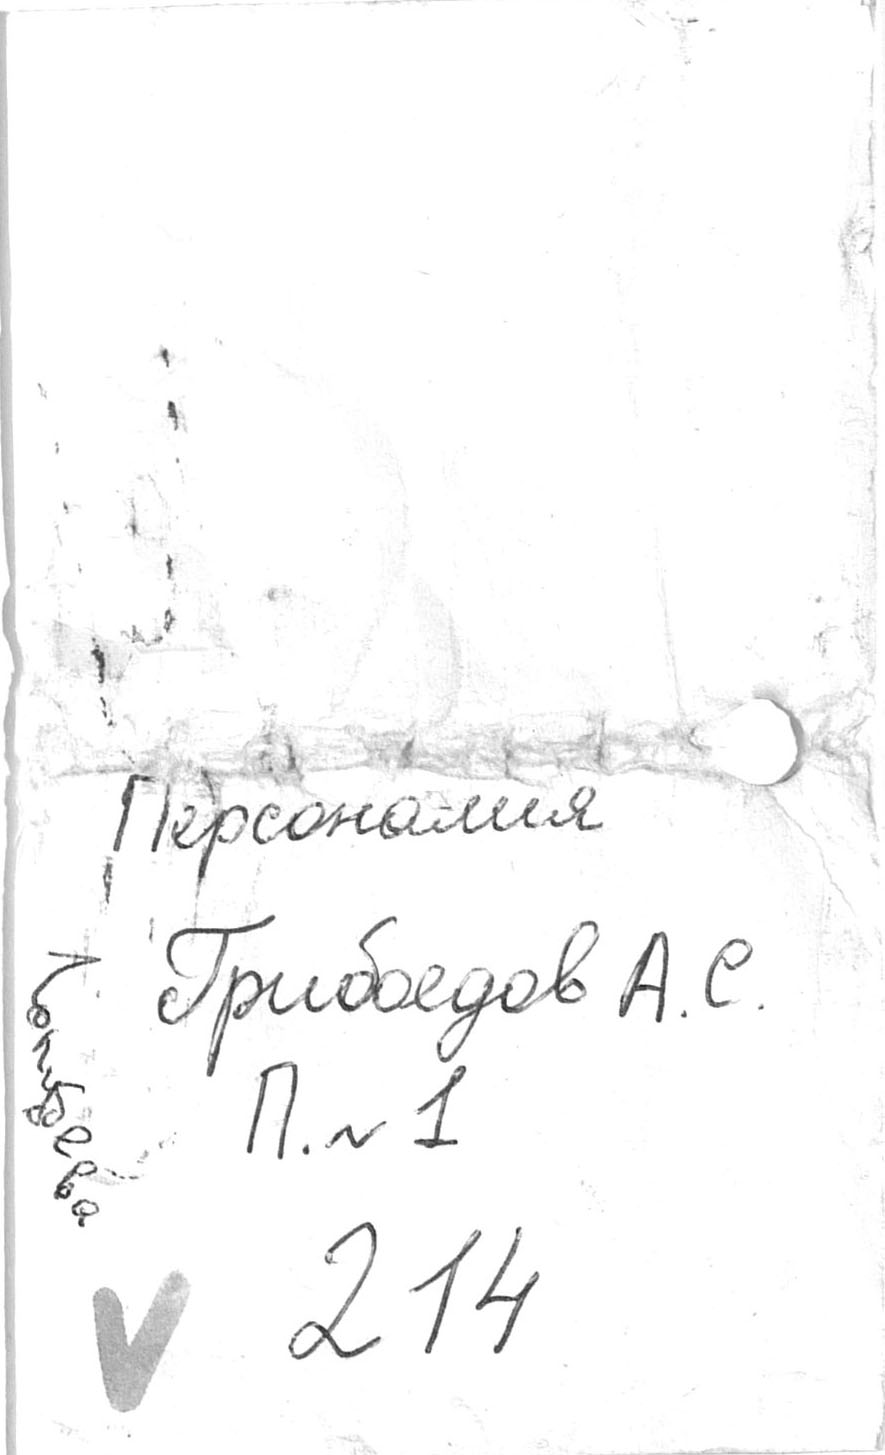 Персоналия
Грибоедов А.С.
П. № 1
214